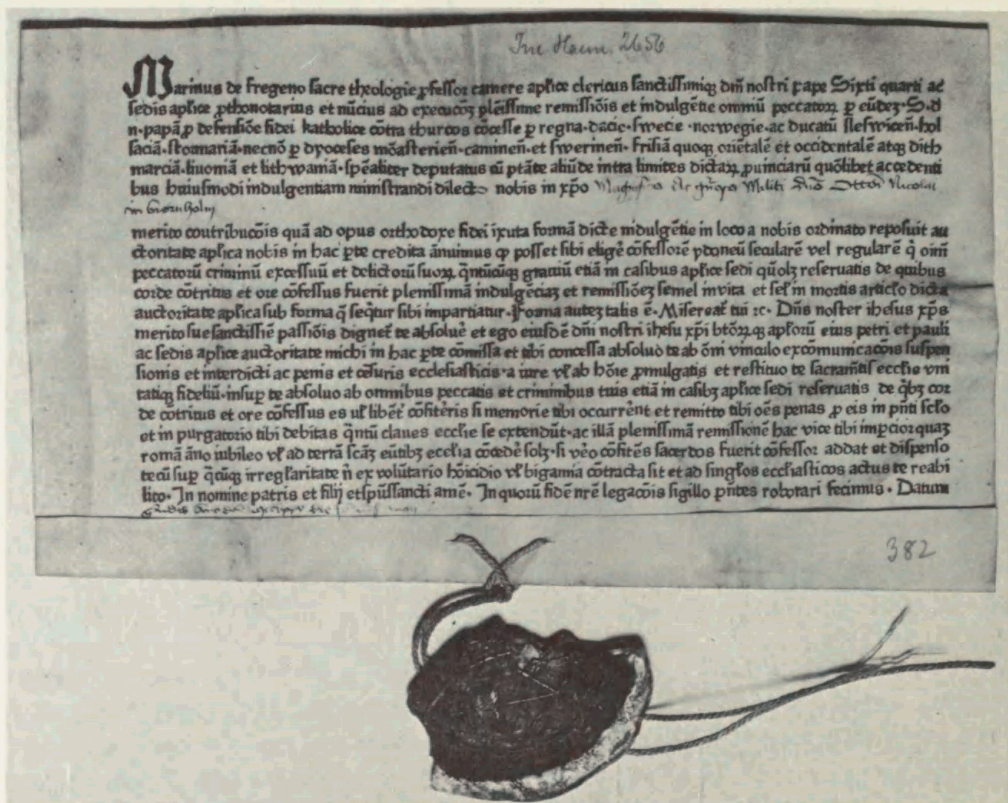 Inc Haun. 2656
Marinus de fregeno sacre theologie ꝓfessor camere aplice clericus sanctissimiqꝫ dm̄ nostri pape Sixti quarti ac
sedis aplice ꝓthonotarius et nūcius ad execucōꝫ plēissime remissiōis et indulgētie omniū peccatoꝝ ꝑ eūdeꝫ·S·d
n·papā ꝓ defensiōe fidei katholice cōtra thurcos cōcesse ꝑ regna·dacie·swecie·norwegie·ac ducatū sleswiceñ·hol
saciā·stormariā·necnō ꝑ dyoceses mōasterieñ·camineñ·et swerineñ·frisiā quoqꝫ oriētalē et occidentalē atqꝫ dith
marciā·liuoniā et lithwaniā·spēaliter deputatus cū ptāte aliūde intra limites dictaꝝ ꝓuinciarū quōlibet accedenti
bus huiusmodi indulgentiam ministrandi dilecto nobis in xp̄o Militi Nicolai
merito contribucōis quā ad opus orthodoxe fidei ixuta formā dicte indulgētie in loco a nobis ordinato reposuit au
ctoritate aplica nobis in hac ꝑte credita ānuimus ꝙ posset sibi eligē cōfessorē ydoneū secularē vel regularē q̄ oim̄
peccatorū criminū excessuū et delictorū suoꝝ qn̄tūcūqꝫ grauiū etiā in casibus aplice sedi qūolꝫ reseruatis de quibus
corde cōtritus et ore cōfessus fuerit plenissimā indulgēciaꝫ et remissiōeꝫ semel in vita et sel̄ in mortis articło dicta
auctoritate aplica sub forma q̄ seq̄tur sibi impartiatur·Forma auteꝫ talis ē·Misereat̄ tui ꝛc·Dn̄s noster ihesus xp̄s
merito sue sanctissīe passiōis dignet̄ te absoluē et ego eiusdē dm̄ nostri ihesu xp̄i btōꝝqꝫ aplōrū eius petri et pauli
ac sedis aplice auctoritate michi in hac ꝑte cōmissa et tibi concessa absoluo te ab ōm̄i vinculo excōmunicacōis suspen
sionis et interdicti ac penis et cēsuris ecclesiasticis·a iure vł ab hōie ꝓmulgatis et restituo te sacramētis ecclie vni
tatiqꝫ fideliū·insuꝑ te absoluo ab omnibus peccatis et criminibus tuis etiā in casibꝫ aplice sedi reseruatis de q̄bꝫ cor
de cōtritus et ore cōfessus es vł libēt̄ cōfiteris si memorie tibi occurrēnt et remitto tibi oēs penas ꝓ eis in pn̄ti scło
et in purgatorio tibi debitas qn̄tū claues ecclie se extendūt·ac illā plenissimā remissionē hac vice tibi imꝑcior quaꝫ
romā āno iubileo vł ad terrā scāꝫ eūtibꝫ ecclia cōcedē solꝫ·si vēo cōfitēs sacerdos fuerit cōfessor addat et dispenso
tecū suꝑ q̄cūqꝫ irregłaritate n̄ ex volūtario hōicidio vł bigamia cōtracta sit et ad singłos ecclesiasticos actus te reabi
lito·In nomine patris et filij et spūssancti amē·In quorū fidē nr̄e legacōis sigillo pn̄tes roborari fecimus·Datum
382